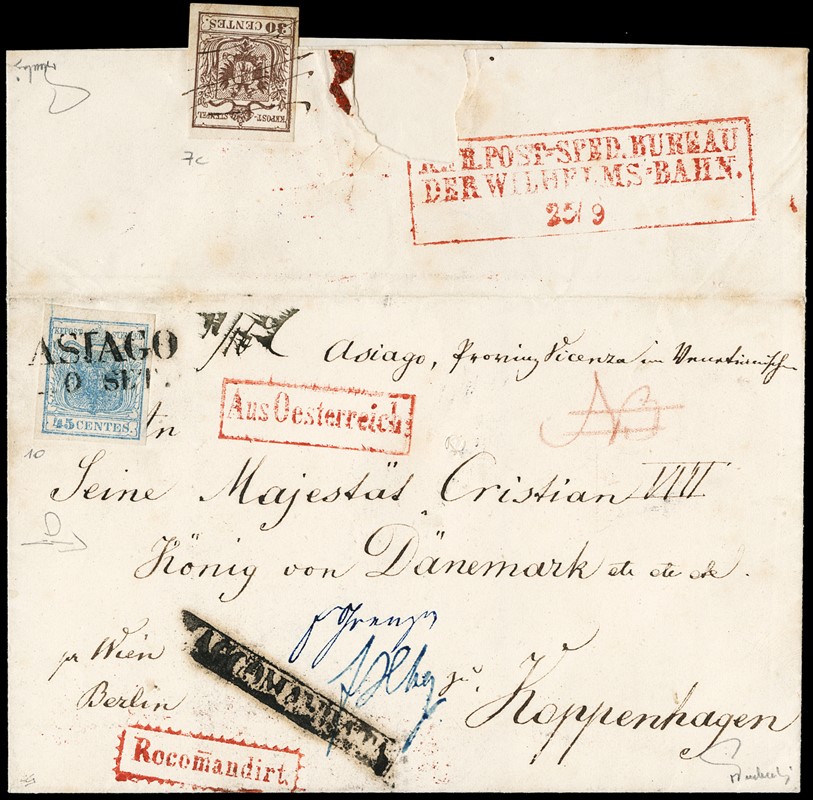 30 CENTES.
KKPOST-STEMPEL
7c
POST-SPED.BUREAU
DER WILHELMS-BAHN.
25/9
ASIAGO
0 SET.
KKPOST-STEMPEL
45CENTES.
10
Asiago, Provinz Vicenza im Venetianischen
Aus Oesterreich
An
Seine Majestät Cristian VIII
König von Dänemark etc etc etc.
pr Wien
Berlin
zu Koppenhagen
Recomandirt.